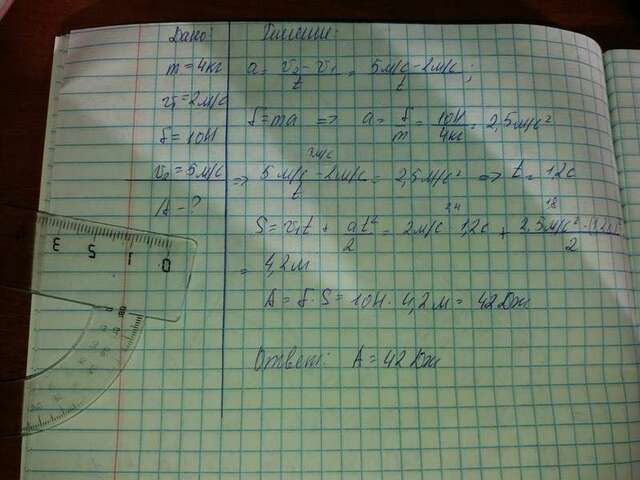 Дано:
m = 4кг
v₁ = 2м/с
F = 10Н
v₂ = 5м/с
A - ?
Решение:
a = (v₂ - v₁)/t = (5м/с - 2м/с)/t ;
F = ma => a = F/m = 10Н/4кг = 2,5м/с²
3м/с
=> (5м/с - 2м/с)/t = 2,5м/с² => t = 1,2с
2,4 1,8
S = v₁t + at²/2 = 2м/с 1,2с + 2,5м/с² · (1,2с)²/2
= 4,2м
A = F · S = 10Н · 4,2м = 42Дж
Ответ: A = 42Дж
0 1 2 3